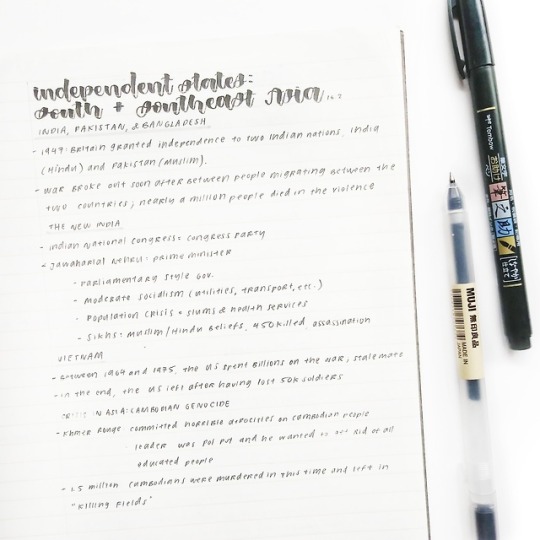 independent states:
south + southeast Asia 16.2
INDIA, PAKISTAN, & BANGLADESH
- 1947: Britain granted independence to two Indian nations, India
(Hindu) and Pakistan (Muslim).
- War broke out soon after between people migrating between the
two countries; nearly a million people died in the violence
THE NEW INDIA
- Indian National Congress = Congress Party
- Jawaharlal Nehru: prime minister
- Parliamentary style gov.
- Moderate socialism (utilities, transport, etc.)
- Population crisis = slums & health services
- Sikhs: Muslim/Hindu beliefs, 450 killed assassination
VIETNAM
- Between 1964 and 1975, the US spent billions on the war; stalemate
- in the end, the US left after having lost 50k soldiers
IN ASIA: CAMBODIAN GENOCIDE
- Khmer Rouge: committed horrible atrocities on Cambodian people
leader was Pol Pot and he wanted to get rid of all
educated people
- 1.5 million Cambodians were murdered in this time and left in
"Killing Fields"
Tombow
筆之助
MUJI 無印良品
MADE IN
JAPAN